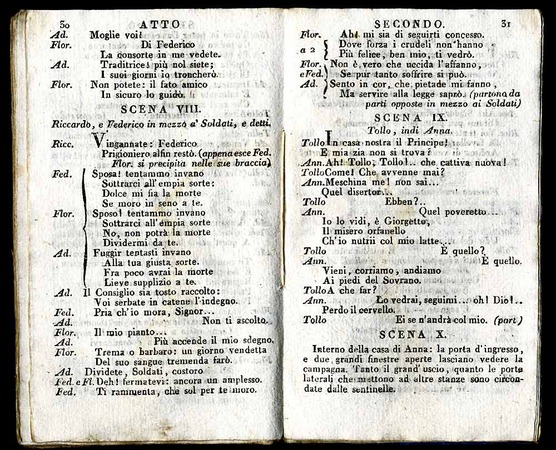 30 ATTO
Ad. Moglie voi!
Flor. Di Federico
La consorte in me vedete.
Ad. Traditrice! più nol siete;
I suoi giorni io troncherò.
Flor. Non potete: il fato amico
In sicuro lo guidò.
SCENA VIII.
Riccardo, e Federico in mezzo a' Soldati, e detti.
Ricc. Vingannate: Federico
Prigioniero alfin restò. (appena esce Fed.
Flor. si precipita nelle sue braccia)
Fed. Sposa! tentammo invano
Sottrarci all'empia sorte:
Dolce mi fia la morte
Se moro in seno a te.
Flor. Sposo! tentammo invano
Sottrarci all'empia sorte
No, non potrà la morte
Dividermi da te.
Ad. Fuggir tentasti invano
Alla tua giusta sorte.
Fra poco avrai la morte
Lieve supplizio a te.
Ad. Il Consiglio sia tosto raccolto:
Voi serbate in catene l'indegno.
Fed. Pria ch'io mora, Signor...
Ad. Non ti ascolto.
Flor. Il mio pianto...
Ad. Più accende il mio sdegno.
Flor. Trema o barbaro: un giorno vendetta
Del suo sangue tremenda farò.
Ad. Dividete, Soldati, costoro
Fed. e Fl. Deh! fermatevi: ancora un amplesso.
Fed. Ti rammenta, che sol per te moro.
SECONDO. 31
Flor. Ah! mi sia di seguirti concesso.
a 2 Dove forza i crudeli non hanno
Più felice, ben mio, ti vedrò.
Flor. Non è vero che uccida l'affanno,
e Fed. Se pur tanto soffrire si può.
Ad. Sento in cor, che pietade mi fanno,
Ma servire alla legge saprò. (partono da
parti opposte in mezzo ai Soldati)
SCENA IX.
Tollo, indi Anna.
Tollo In casa nostra il Principe!
E mia zia non si trova?
Ann. Ah! Tollo, Tollo!.. che cattiva nuova!
Tollo Come! Che avvenne mai?
Ann. Meschina me! non sai...
Quel disertor...
Tollo Ebben?..
Ann. Quel poveretto...
Io lo vidi, è Giorgetto,
Il misero orfanello
Ch'io nutrii col mio latte...
Tollo È quello?
Ann. È quello.
Vieni, corriamo, andiamo
Ai piedi del Sovrano.
Tollo A che far?
Ann. Lo vedrai, seguimi... oh! Dio!..
Perdo il cervello.
Tollo Ei se n'andrà col mio. (part)
SCENA X.
Interno della casa di Anna: la porta d'ingresso,
e due grandi finestre aperte lasciano vedere la
campagna. Tanto il grand'uscio, quanto le porte
laterali che mettono ad altre stanze sono circon-
date dalle sentinelle.